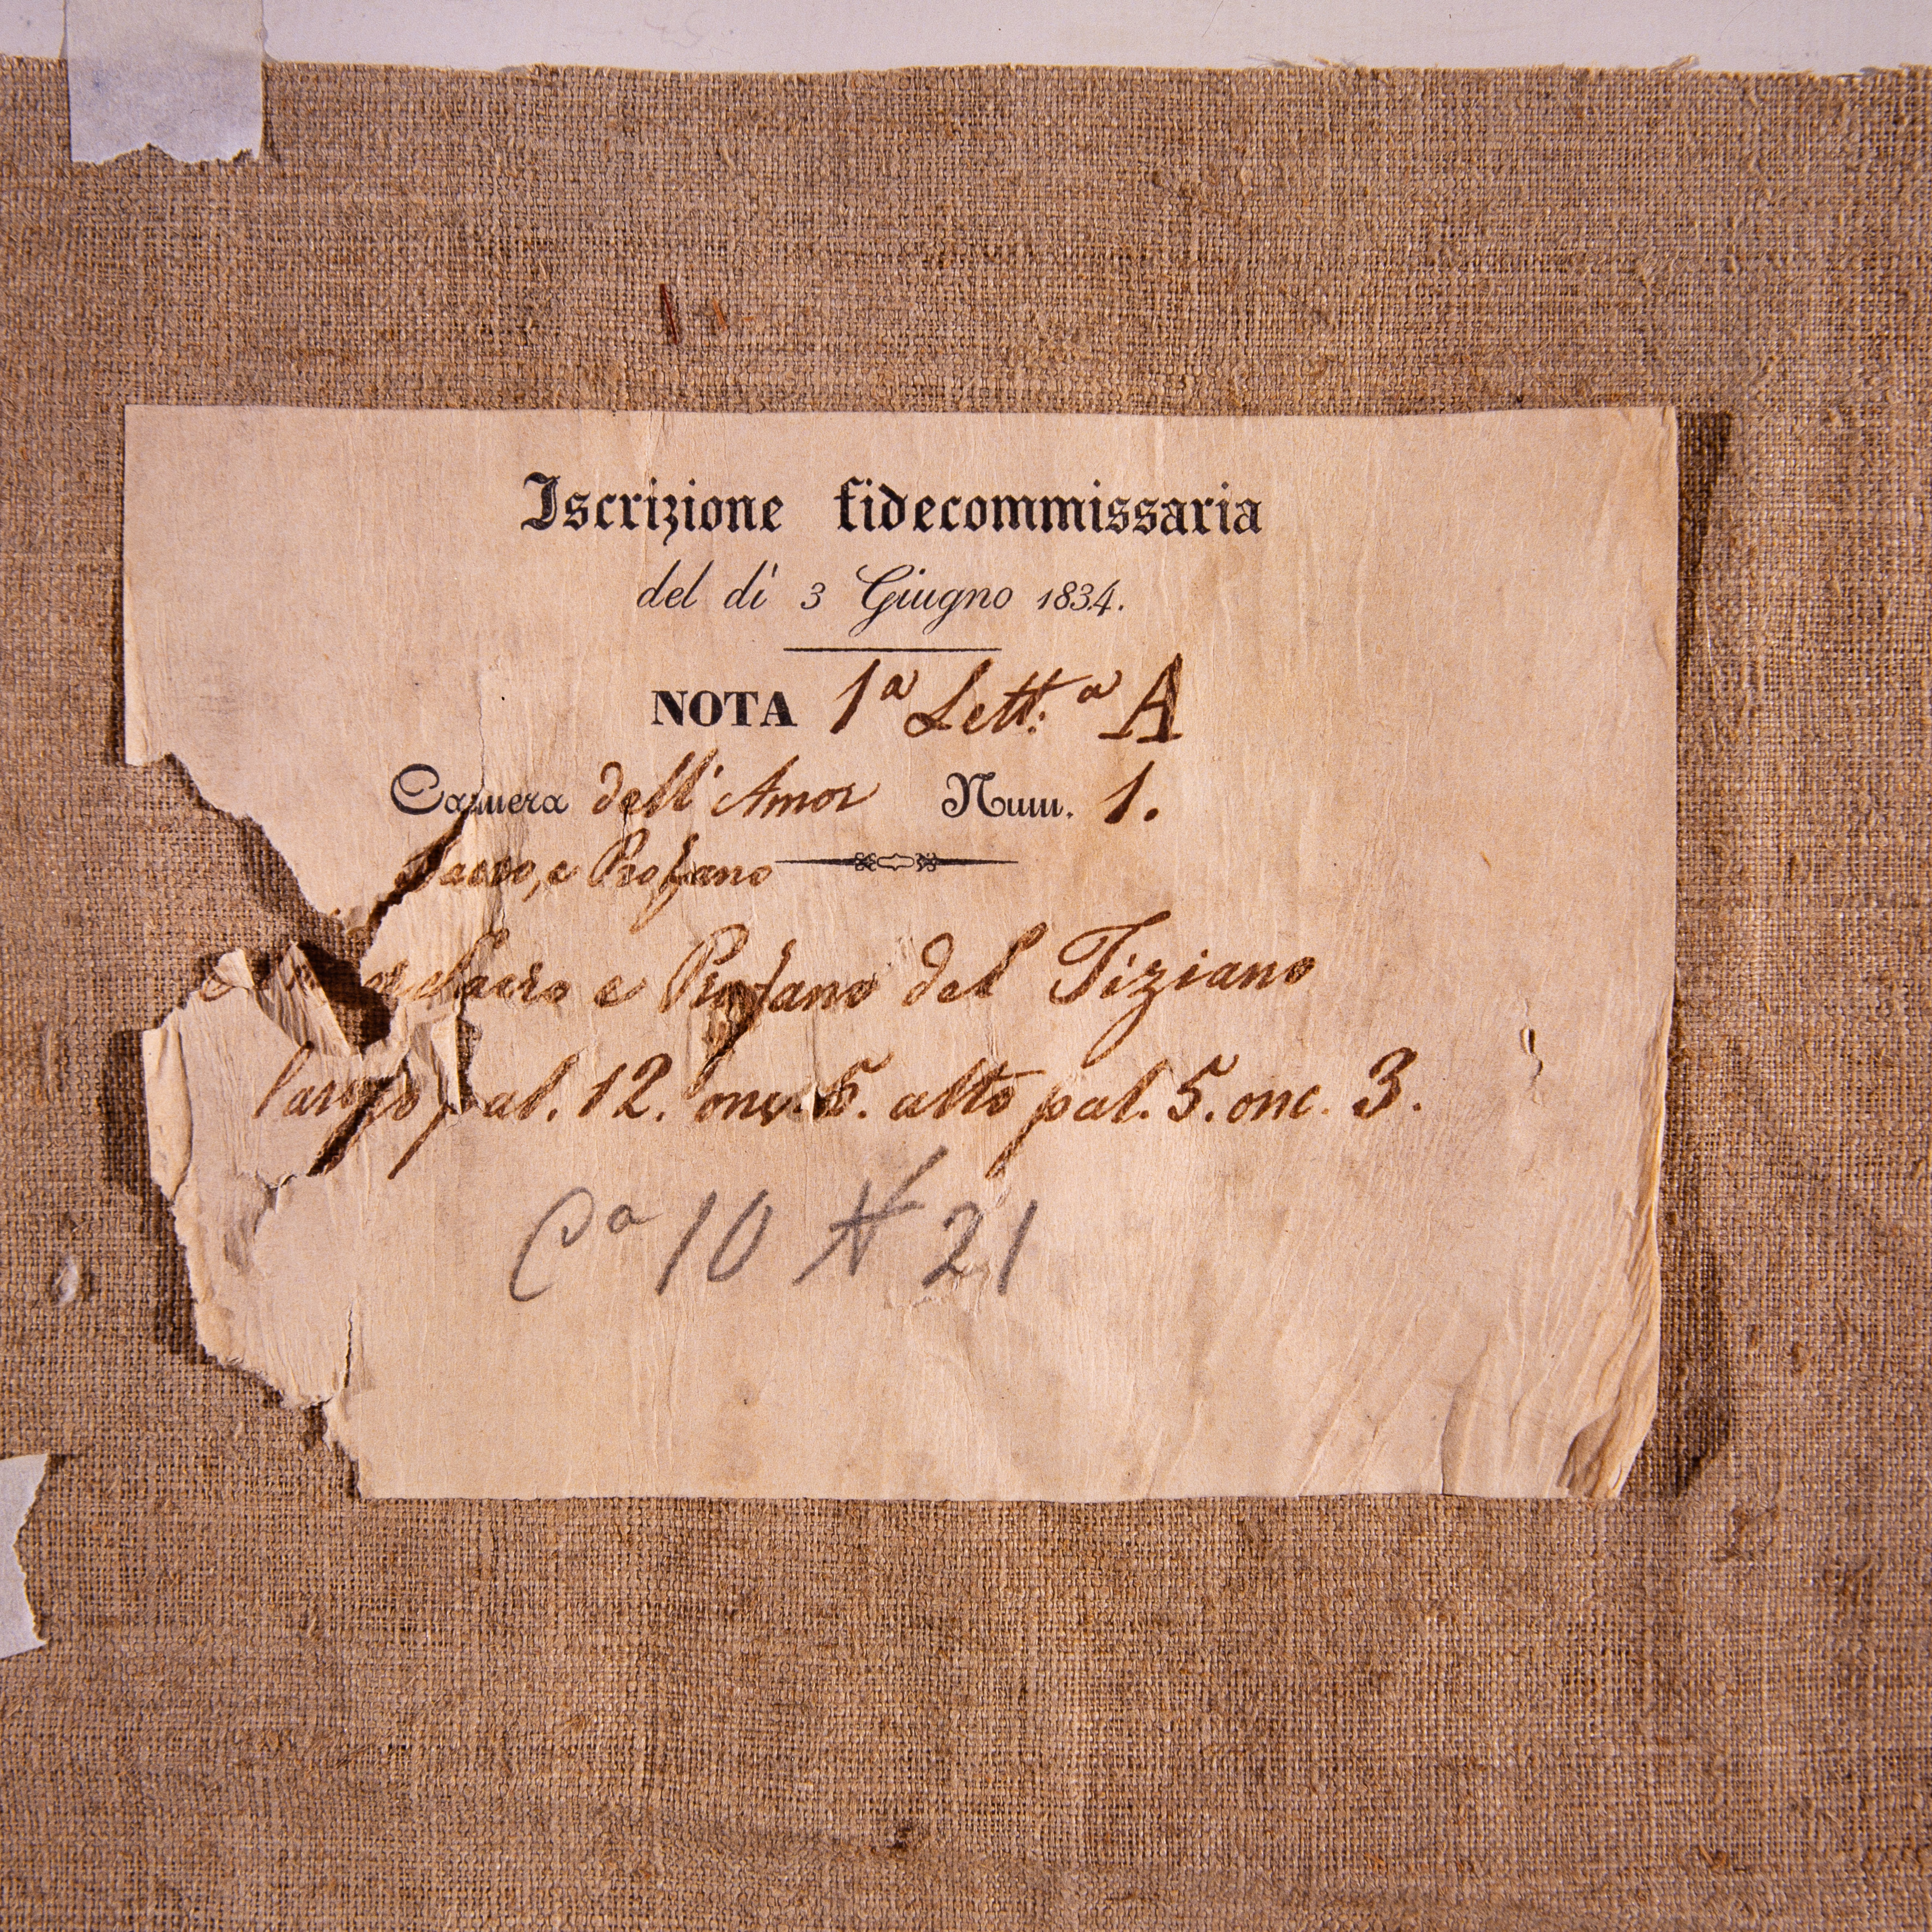 Iscrizione fidecommissaria
del dì 3 Giugno 1834.
NOTA 1ª Lett.ª A
Camera dell'Amor Num. 1.
Sacro, e Profano
Sacro e Profano del Tiziano
largo pal. 12. onc. 6. alto pal. 5. onc. 3.
Cª 10 N 21